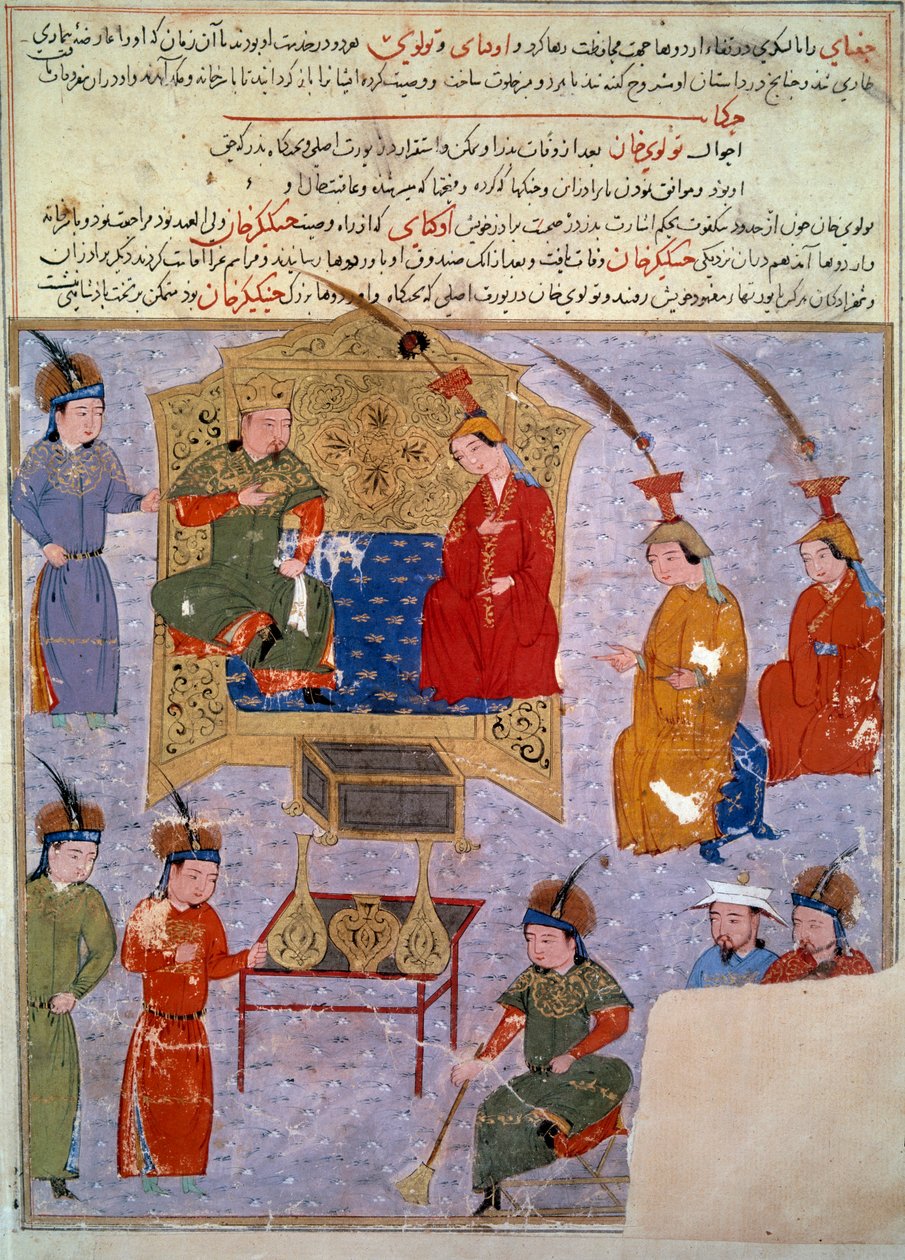 جغتای را با لشکری در قفاء اردوها جهت محافظت رها کرد و اوکتای و تولوی بهم در خدمت او بودند تا آن زمان که او را عارضهٔ بیماری
طاری شد و چنانچ در داستان او مشروح گفته شد با هر دو بهم خلوت ساخت و وصیت کرده ایشانرا باز کردانید تا با سر خانه و ملک آمدند و او در آن سفر وفات یافت
حکایت
احوال تولوی خان بعد از وفات پدر او و تمکن و استقرار در یورت اصلی و تختکاه پدر که حق
او بود و موافق بودن با برادران و جنکها که کرده و فتحها که میسر شده و عاقبت حال او
تولوی خان چون از حدود تنکقوت بحکم اشارت پدر در صحبت برادر خویش اوکتای که از راه وصیت چینککیزخان ولی العهد بود مراجعت نمود و با سر خانه
و اردوها آمد هم در آن نزدیکی چینککیزخان وفات یافت و بعد از آنک صندوق او با اوردوها رسانیدند و مراسم عزا اقامت کردند دیکر برادران
و شهزادکان هر کس با یورتهاء معهود خویش رفتند و تولوی خان در یورت اصلی که تختکاه و اوردوها بزرک چینککیزخان بود متمکن بر تخت پادشاهی نشست